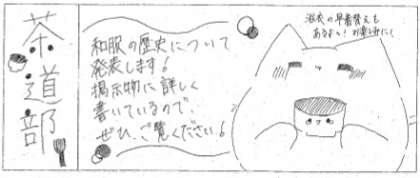 茶道部
和服の歴史について
発表します!
掲示物に詳しく
書いているので
ぜひ、ご覧ください!
浴衣の早着替えも
あるよ!お楽しみに!